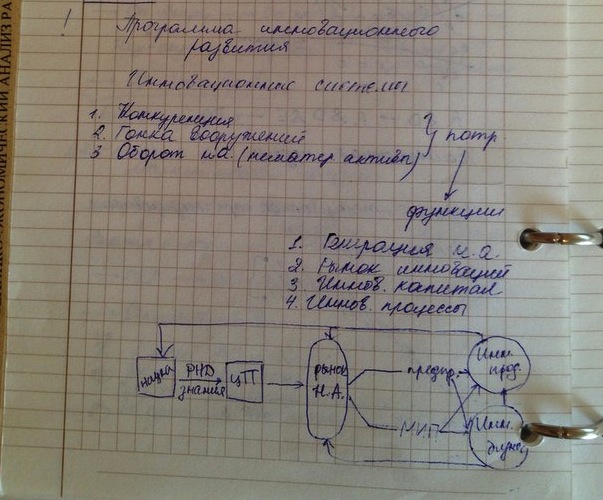 !
Программа инновационного
развития
Инновационные системы
1. Конкуренция
2. Гонка вооружений
3 Оборот н.а. (нематер активы)
} потр
функции
1. Генерация н.а.
2. Рынок инноваций
3 Иннов. капитал
4. Иннов. процессы
наука
РНД
знания
ЦП
рынок
Н.А.
предпр.
МИП
Инн.
прод.
Инн.